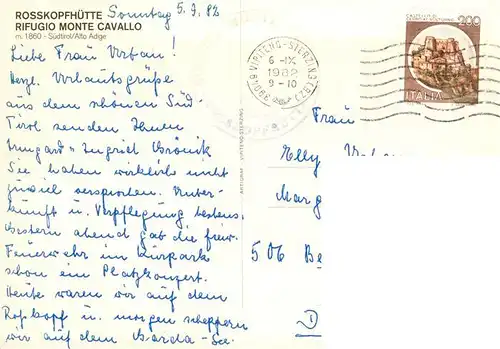 ROSSKOPFHÜTTE
RIFUGIO MONTE CAVALLO
m. 1860 - Südtirol/Alto Adige
Sonntag 5.9.82
Liebe Frau Urban!
Herzl. Urlaubsgrüße
aus dem schönen Süd-
Tirol senden Ihnen
Irmgard u. Ingrid
Sie haben wirklich nicht
zuviel versprochen. Unter-
kunft u. Verpflegung bestens.
Gestern abend gab die freiw.
Feuerwehr im Kurpark
schon ein Platzkonzert.
Heute waren wir auf dem
Roßkopf u. morgen scheppern
wir auf dem Garda-See.
39049 VIPITENO-STERZING (BZ)
6-IX
1982
9-10
200
ITALIA
Frau
Elly
Marg
506 Be
D